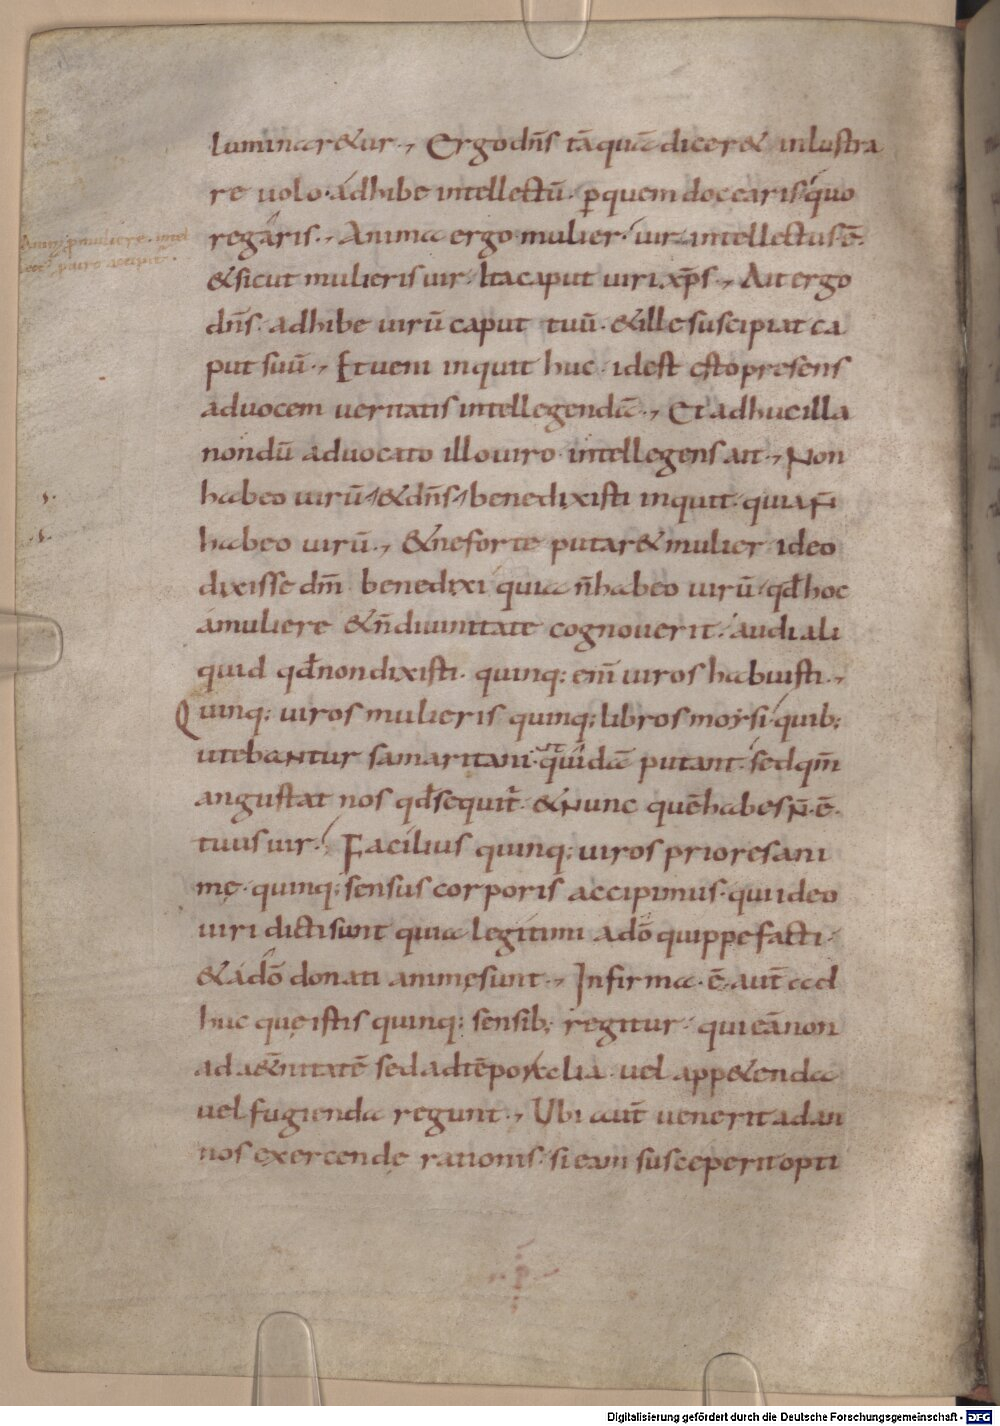 luminar&ur., Ergo dn̄s tāquā dicer& inlustra
re uolo· adhibe intellectū· ꝑquem docearis· quo
regaris., Anima ergo mulier· uir intellectus·ē·
& sicut mulieris uir· Ita caput uiri· xp̄s., Ait ergo
dn̄s· adhibe uirū caput tuū· & ille suscipiat ca
put suū., Et ueni inquit huc· idest esto presens
ad uocem ueritatis intellegendā., Et adhuc illa
nondū aduocato illo uiro· intellegens ait., Non
habeo uirū· & dn̄s· benedixisti inquit· quia n̄
habeo uirū., & ne forte putar& mulier· ideo
dixisse dn̄m· benedixi quia n̄ habeo uirū· qđ hoc
á muliere & n̄ diuinitate cognouerit· audi ali
quid qđ non dixisti· quinq; eni̅ uiros habuisti.,
Quinq; uiros mulieris quinq; libros moysi· quib;
utebantur samaritani· quidā putant· sed qm̄
angustat nos qđ sequit̄· & Nunc quē habes N̄·ē·
tuus uir., Facilius quinq; uiros priores ani
mę· quinq; sensus corporis accipimus· qui ideo
uiri dicti sunt quia legitimi a dō quippe facti·
& á dō donati animę sunt., Infirma·ē· aut̄ ad
huc quę istis quinq; sensib; regitur· qui eā non
ad aet̄nitatē sed ad tēporalia· uel app&enda
uel fugienda regunt., Ubi aut̄ uenerit ad an
nos exercendę rationis· si eam susceperit opti